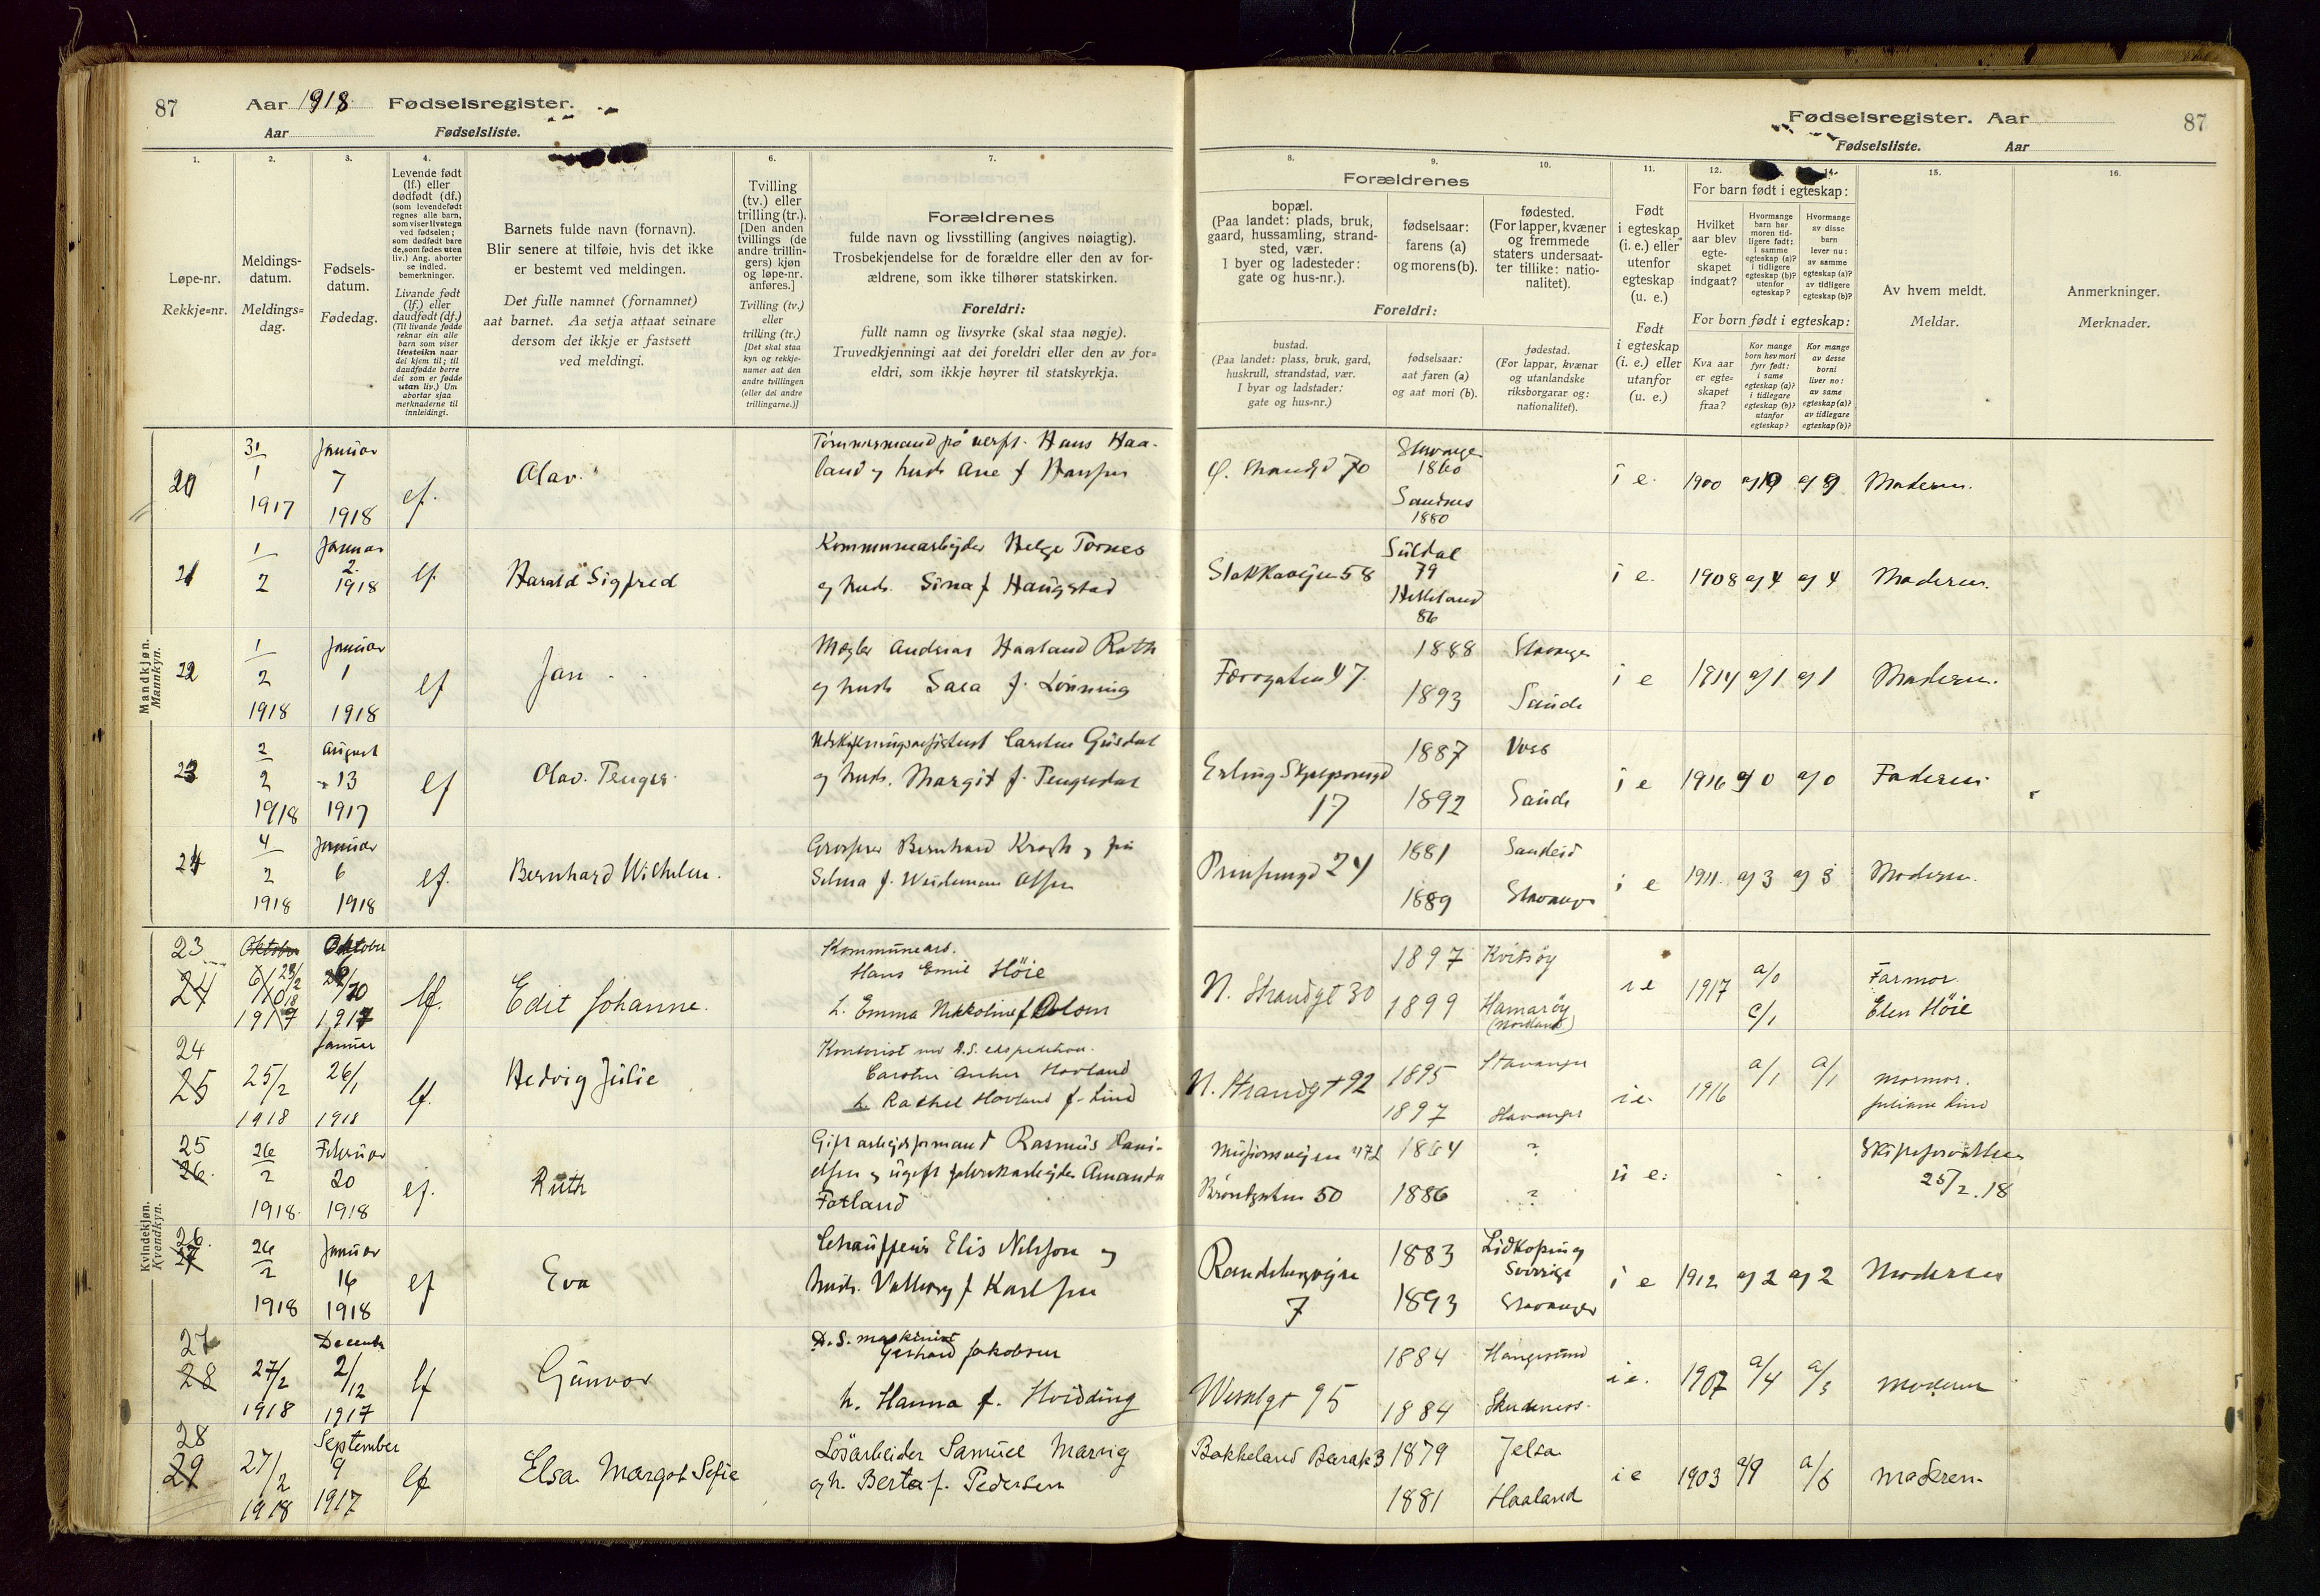 87
Aar 1918. Fødselsregister.
Aar
Fødselsliste.
1.
Løpe-nr.
Rekkje=nr.
2.
Meldings-
datum.
Meldings=
dag.
3.
Fødsels-
datum.
Fødedag.
4.
Levende født
(lf.) eller
dødfødt (df.)
(som levendefødt
regnes alle barn,
som viser livstegn
ved fødselen;
som dødfødt bare
de, som fødes uten
liv.) Ang. aborter
se indled.
bemerkninger.
Livande født
(lf.) eller
daudfødt (df.)
(Til livande fødde
reknar ein alle
barn som viser
livsteikn naar
dei kjem til; til
daudfødde berre
dei som er fødde
utan liv.) Um
abortar sjaa
merknaderne til
innleidingi.
Barnets fulde navn (fornavn).
Blir senere at tilføie, hvis det ikke
er bestemt ved meldingen.
Det fulle namnet (fornamnet)
aat barnet. Aa setja attaat seinare
dersom det ikkje er fastsett
ved meldingi.
6.
Tvilling
(tv.) eller
trilling (tr.).
[Den anden
tvillings (de
andre trillin-
gers) kjøn
og løpe-nr.
anføres.]
Tvilling (tv.)
eller
trilling (tr.)
[Det skal staa
kyn og rekkje-
numer aat den
andre tvillingen
(eller dei andre
trillingarne.)]
7.
Forældrenes
fulde navn og livsstilling (angives nøiagtig).
Trosbekjendelse for de forældre eller den av for-
ældrene, som ikke tilhører statskirken.
Foreldri:
fullt namn og livsyrke (skal staa nøgje).
Truvedkjenningi aat dei foreldri eller den av for=
eldri, som ikkje høyrer til statskyrkja.
Fødselsregister. Aar
87
Fødselsliste.
Aar
8.
Forældrenes
bopæl.
(Paa landet: plads, bruk,
gaard, hussamling, strand-
sted, vær.
I byer og ladesteder:
gate og hus-nr.).
9.
fødselsaar:
farens (a)
og morens (b).
10.
fødested.
(For lapper, kvæner
og fremmede
staters undersaat-
ter tillike: natio-
nalitet).
Foreldri:
bustad.
(Paa landet: plass, bruk, gard,
huskrull, strandstad, vær.
I byar og ladstader:
gate og hus=nr.)
fødselsaar:
aat faren (a)
og aat mori (b).
fødestad.
(For lappar, kvænar
og utanlandske
riksborgarar og:
nationalitet).
11.
Født
i egteskap
(i. e.) eller
utenfor
egteskap
(u. e.)
Født
i egteskap
(i. e.) eller
utanfor
(u. e.)
12.
14.
For barn født i egteskap:
Hvilket
aar blev
egte-
skapet
indgaat?
Hvormange
barn har
moren tid-
ligere født:
i samme
egteskap (a)?
i tidligere
egteskap (b)?
utenfor
egteskap?
Hvormange
av disse
barn
lever nu:
av samme
egteskap (a)?
av tidligere
egteskap (b)?
For born født i egteskap:
Kva aar
er egte-
skapet
fraa?
Kor mange
born hev mori
fyrr født:
i same
egteskap (a)?
i tidlegare
egteskap (b)?
utanfor
egteskap?
Kor mange
av desse
borni
liver no:
av same
egteskap (a)?
av tidlegare
egteskap (b)?
15.
Av hvem meldt.
Meldar.
16.
Anmerkninger.
Merknader.
Mandkjøn.
Mannkyn.
20
31
1
1917
Januar
7
1918
Olav.
Hans Haa-
land
70
Stavanger
1860
Sandnes
1880
i e.
1900
Moderen.
21
1
2
Januar
2.
1918
Harald Sigfred
Kommunearbejder Helge Tornes
Haugstad
58
Suldal
79
Helleland
86
i e.
1908 a/4 a/4
Moderen.
22
1
2
1918
Januar
1
1918
Jan
Mægler Andreas Haaland Roth
Lønning
1888
1893
Stavanger
Sande
i e
1914 a/1 a/1
Moderen.
23
2
2
1918
August
13
1917
Olav.
Carsten
Margit f.
17
1887
1892
Voss
Sande
i e
1916 a/0 a/0
Faderen.
24
4
2
1918
Januar
6
1918
Bernhard Wilhelm.
Grosserer Bernhard Krogh
Selma f.
24
1881
1889
Sandeid
Stavanger
i e
1911 a/3 a/3
Moderen.
Kvindekjøn.
Kvendkyn.
23
24
Oktober
Oktober
1917
lf.
Edit Johanne.
Kommunearb.
Hans Emil Höie
h. Emma
N. Strandgt 30
1897
1899
Kvitsøy
Hamarøy
(Nordland)
i e
1917
a/0
c/1
Farmor
Elen Höie
24
25
25/2
1918
Januar
26/1
1918
lf.
Hedvig Julie
Kontorist
Hovland
h. Rachel Hovland f. Lind
N. Strandgt 92
1895
1897
Stavanger
Stavanger
i e.
1916
a/1 a/1
mormor.
Juliane Lind
25
26
26
2
1918.
Februar
20
1918
Ruth
Gift arbejdsformand Rasmus Dani-
elsen og ugift fabrikarbejder Amanda
Fotland
50
1864
1886
?
?
u e.
25/2.18
26.
27
26
2
1918
Januar
16
1918
Eva
Chauffeur Elis Nelsson og
hust. Valborg f Karlsen
7
1883
1893
Lidkøping
Sverrige
Stavanger
i e
1912 a/2 a/2
Moderen
27
28
27/2
1918
December
2/12
1917
lf
Gunvor
D.S. maskinist
Gerhard Jakobsen
h. Hanna f. Hvidding
95
1884
1884
Haugesund
Skudenes.
i e.
1907 a/4
moderen
28
29
27/2
1918
September
9
1917
lf
Elsa Margot Sofie
Løsarbeider Samuel Marvig
og h. Berta f. Pedersen
Bakkeland Barak 3
1879
1881
Jelsa
Haaland
i e
1903 a/9
moderen.